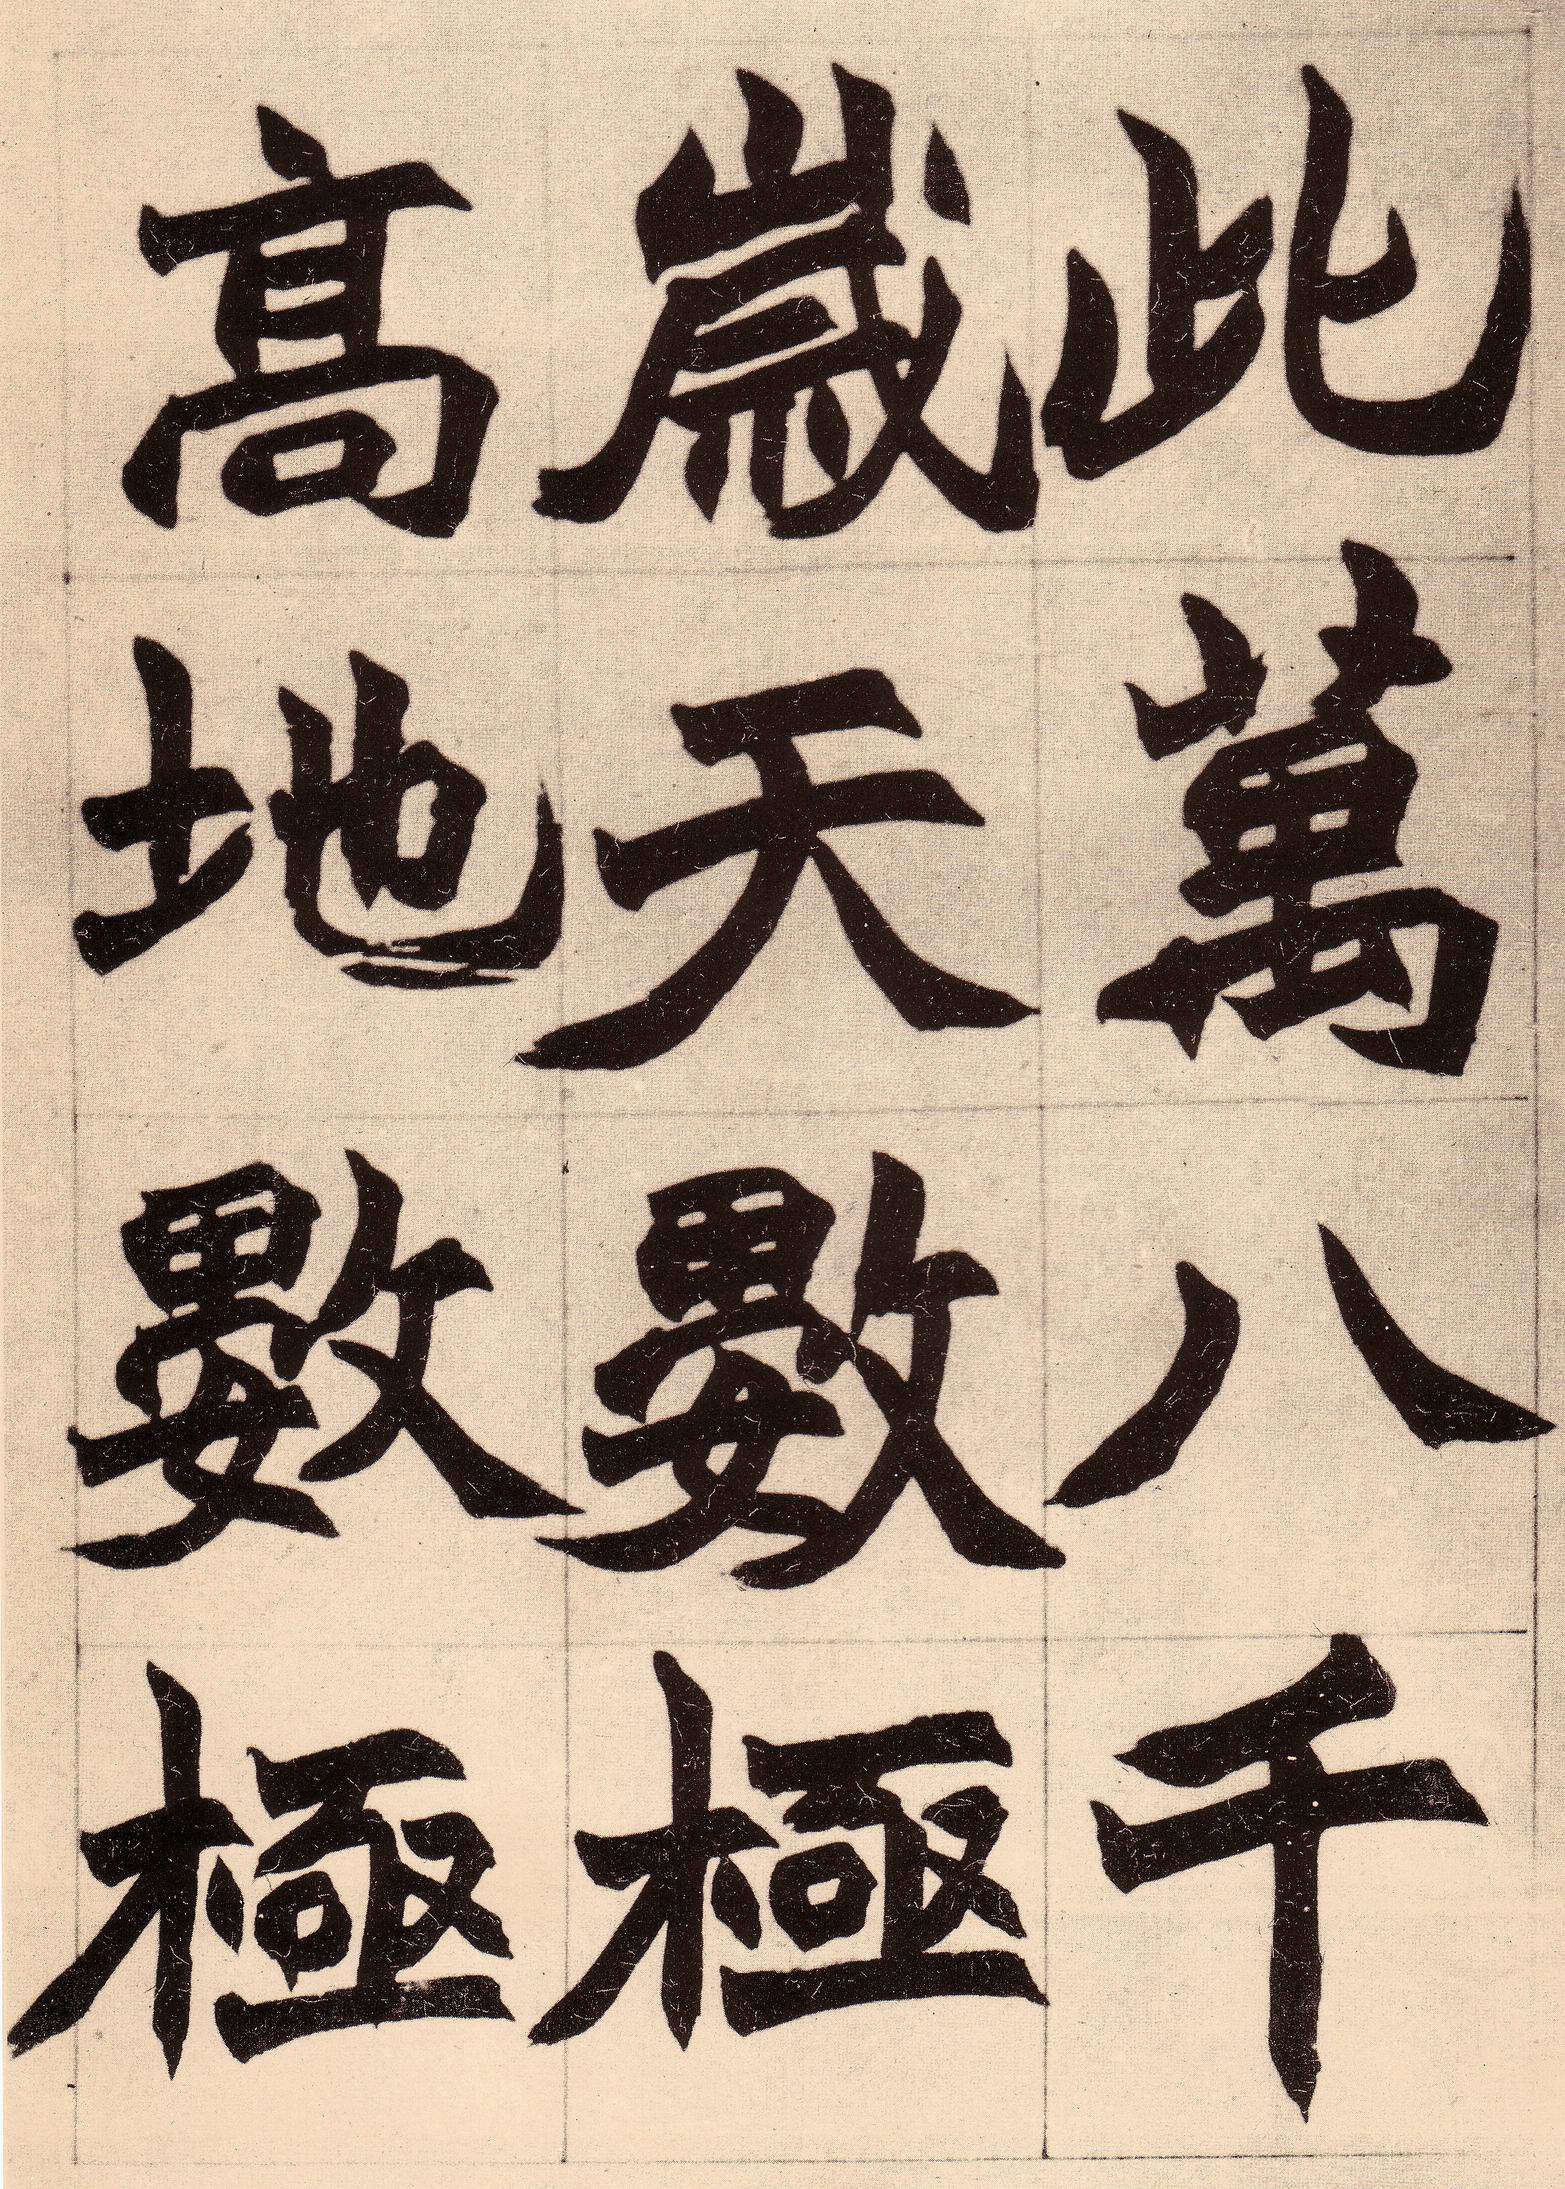 此萬八千
歲天數極
髙地數極